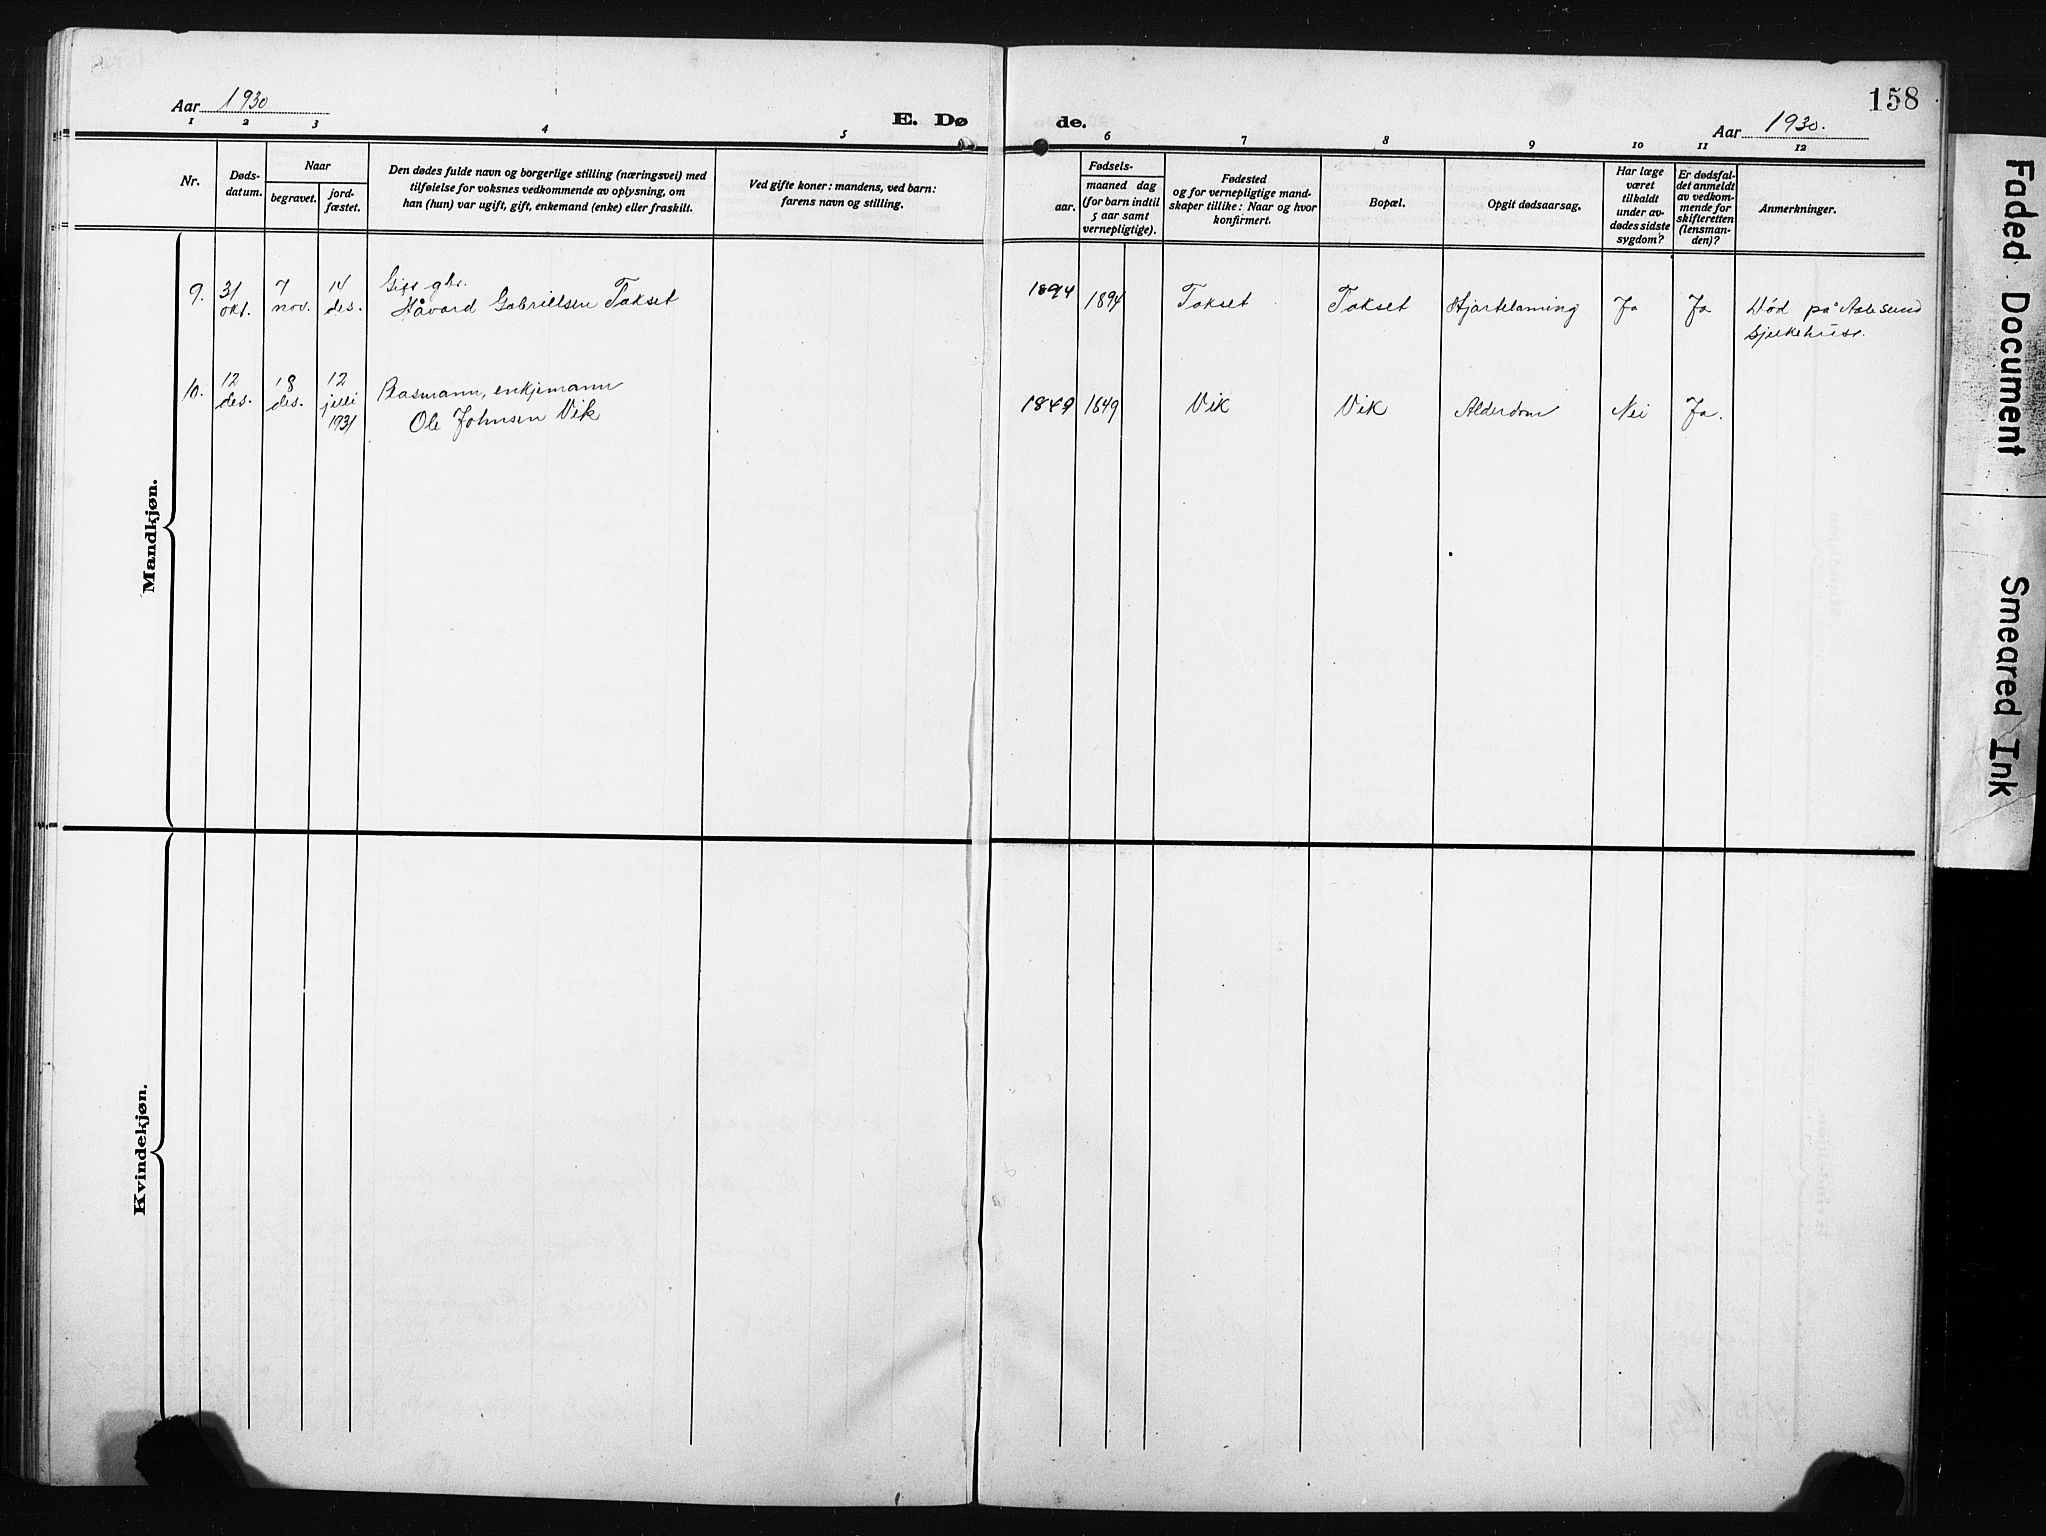 158
Aar 1930
E. Dø
de.
Aar 1930.
1 2 3 4 5 6 7 8 9 10 11 12
Nr.
Døds-
datum.
Naar
begravet.
jord-
fæstet.
Den dødes fulde navn og borgerlige stilling (næringsvei) med
tilføielse for voksnes vedkommende av oplysning, om
han (hun) var ugift, gift, enkemand (enke) eller fraskilt.
Ved gifte koner: mandens, ved barn:
farens navn og stilling.
Fødsels-
aar.
maaned dag
(for barn indtil
5 aar samt
vernepligtige).
Fødested
og for vernepligtige mand-
skaper tillike: Naar og hvor
konfirmert.
Bopæl.
Opgit dødsaarsag.
Har læge
været
tilkaldt
under av-
dødes sidste
sygdom?
Er dødsfal-
det anmeldt
av vedkom-
mende for
skifteretten
(lensman-
den)?
Anmerkninger.
Mandkjøn.
9.
31
okt.
7
nov.
14
des.
Gift gbr.
Håvard Gabrielsen Takset
1894
1894
Takset
Takset
Hjartelaming
Ja
Ja
Død på Aalesund
sjukehus.
10.
12
des.
18
des.
12
juli
1931
Plasmann, enkjemann
Ole Johnsen Vik
1849
1849
Vik
Vik
Alderdom
Nei
Ja.
Kvindekjøn.
Faded Document
Smeared Ink